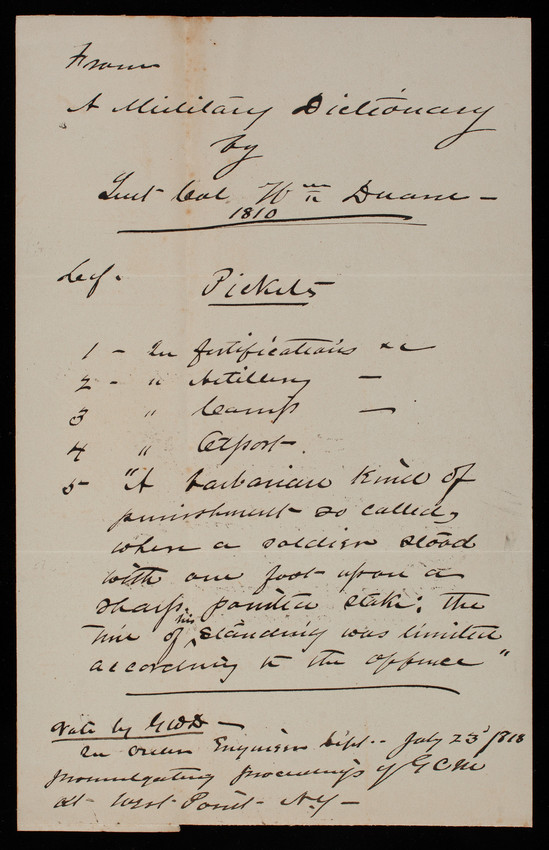 From
A Military Dictionary
by
Lieut Col Wm Duane –
1810
Def.
Pickets
1 – In fortifications &c
2 – " Artillery –
3 " Camp –
4 " Outpost.
5 "A barbarian kind of
punishment so called,
when a soldier stood
with one foot upon a
sharp pointed stake; the
time of his standing was limited
according to the offence"
Note by GWD –
In Order Engineer Dept. July 23d 1818
promulgating proceedings of GCM
at West Point NY –